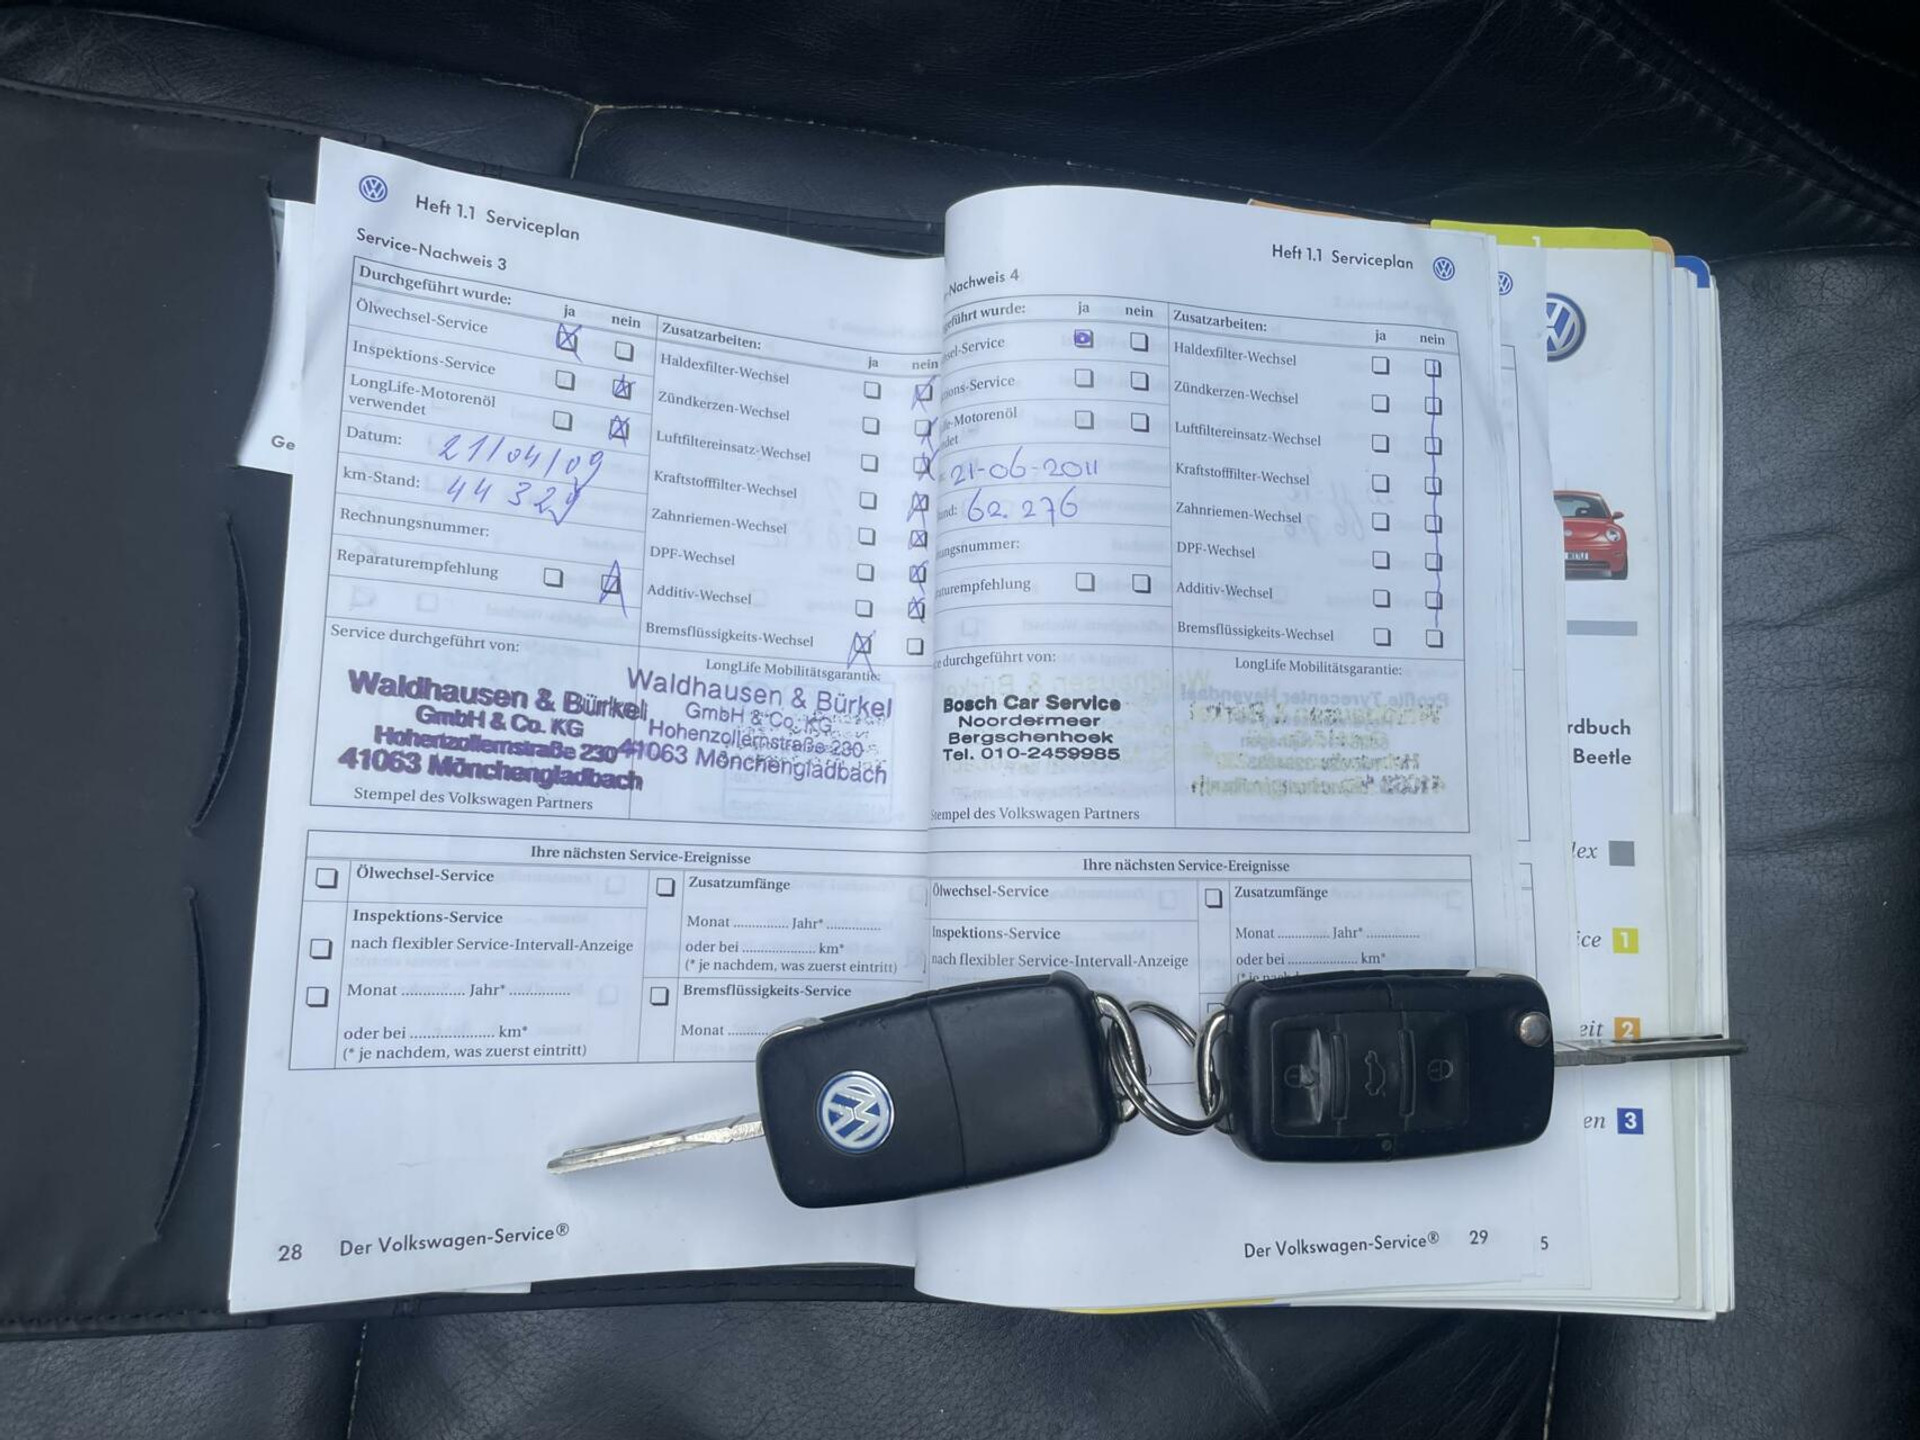 Heft 1.1 Serviceplan
Service-Nachweis 3
Durchgeführt wurde:
ja
nein
Ölwechsel-Service
Inspektions-Service
LongLife-Motorenöl
verwendet
Datum: 21/04/09
km-Stand:
Rechnungsnummer:
Reparaturempfehlung
Zusatzarbeiten:
ja
nein
Haldexfilter-Wechsel
Zündkerzen-Wechsel
Luftfiltereinsatz-Wechsel
Kraftstofffilter-Wechsel
Zahnriemen-Wechsel
DPF-Wechsel
Additiv-Wechsel
Bremsflüssigkeits-Wechsel
Service durchgeführt von:
Waldhausen & Bürkel
GmbH & Co. KG
Hohenzollernstraße 230
41063 Mönchengladbach
Stempel des Volkswagen Partners
LongLife Mobilitätsgarantie:
Waldhausen & Bürkel
GmbH & Co. KG
Hohenzollernstraße 230
41063 Mönchengladbach
Ihre nächsten Service-Ereignisse
Ölwechsel-Service
Inspektions-Service
nach flexibler Service-Intervall-Anzeige
Monat ............... Jahr* ..............
oder bei .................... km*
(* je nachdem, was zuerst eintritt)
Zusatzumfänge
Monat ............. Jahr* .............
oder bei .................. km*
(* je nachdem, was zuerst eintritt)
Bremsflüssigkeits-Service
Monat ..........
28 Der Volkswagen-Service®
Heft 1.1 Serviceplan
-Nachweis 4
geführt wurde:
ja
nein
sel-Service
ions-Service
fe-Motorenöl
det
21-06-2011
and: 62.276
ungsnummer:
aturempfehlung
Zusatzarbeiten:
ja
nein
Haldexfilter-Wechsel
Zündkerzen-Wechsel
Luftfiltereinsatz-Wechsel
Kraftstofffilter-Wechsel
Zahnriemen-Wechsel
DPF-Wechsel
Additiv-Wechsel
Bremsflüssigkeits-Wechsel
e durchgeführt von:
Bosch Car Service
Noordermeer
Bergschenhoek
Tel. 010-2459985
Stempel des Volkswagen Partners
LongLife Mobilitätsgarantie:
Ihre nächsten Service-Ereignisse
Ölwechsel-Service
Inspektions-Service
nach flexibler Service-Intervall-Anzeige
Zusatzumfänge
Monat ............. Jahr* .............
oder bei ................. km*
Der Volkswagen-Service® 29
5
Ge
1
rdbuch
Beetle
lex
ice 1
eit 2
en 3